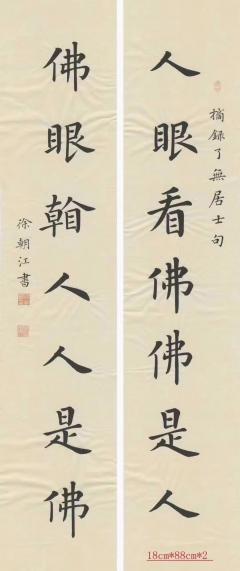 人眼看佛佛是人
摘録了無居士句
佛眼人人是佛
徐朝江書
18cm*88cm*2